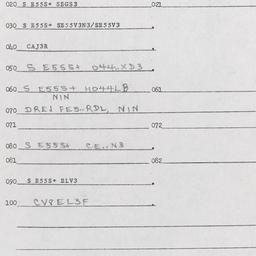 020 S E55S+ SEGS3 021
030 S E55S+ SE55V3N3/SE55V3
040 CAJ3R
050 S E55S+ O44..XD3
060 S E55S+ HO44LB 061
NIN
070 DREJ FES..RDL, NIN
071 072
080 S E55S+ CE..N3
081 082
090 S E55S+ ELV3
100 CV8EL3F